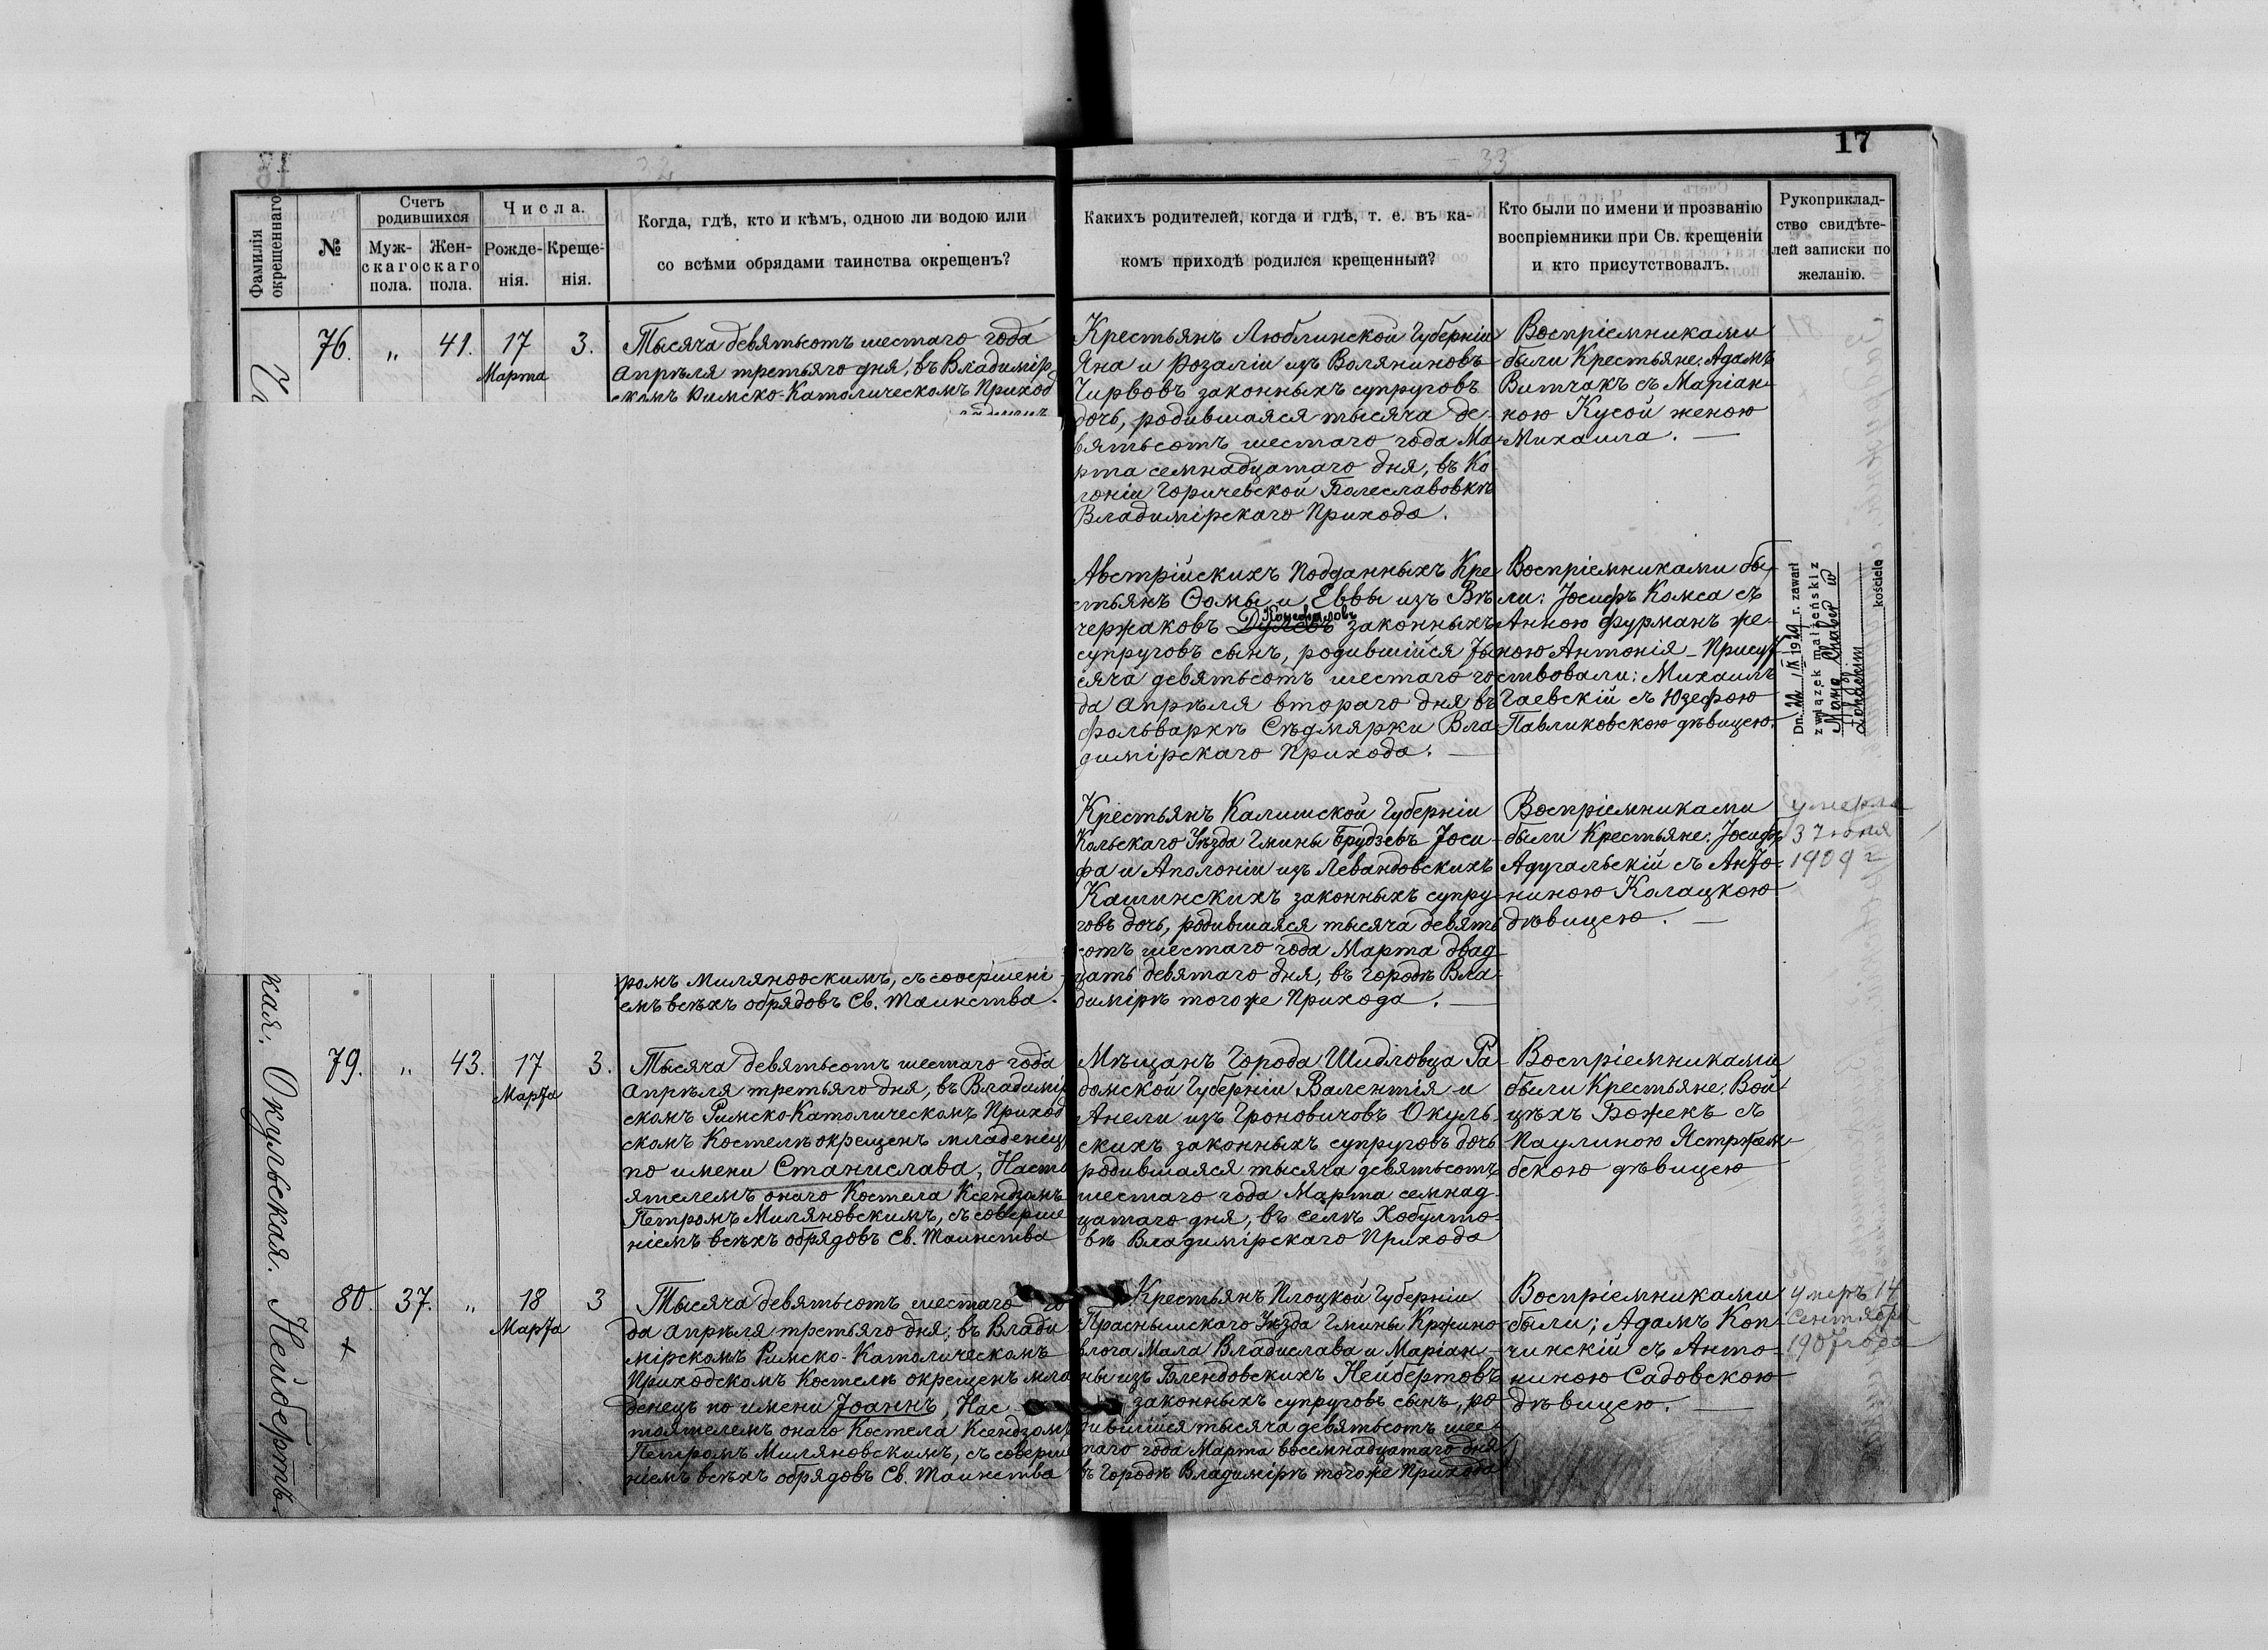 17
33
Фамилія окрещеннаго
№
Счетъ родившихся
Муж-скаго пола.
Жен-скаго пола.
Числа.
Рожде-нія.
Креще-нія.
Когда, гдѣ, кто и кѣмъ, одною ли водою или
со всѣми обрядами таинства окрещенъ?
Какихъ родителей, когда и гдѣ, т. е. въ ка-
комъ приходѣ родился крещенный?
Кто были по имени и прозванію
воспріемники при Св. крещеніи
и кто присутствовалъ.
Рукоприклад-
ство свидѣте-
лей записки по
желанію.
76. „ 41. 17 3.
Марта
Тысяча девятьсотъ шестаго года
Апрѣля третьяго дня, въ Владимір
скомъ Римско-Католическомъ Приход
Крестьянъ Люблинской Губерніи
Яна и Розаліи изъ Воляниновъ
Чирвовъ законныхъ супруговъ
дочь, родившаяся тысяча де-
вятьсотъ шестаго года Ма-
рта семнадцатаго дня, въ Ко
лоніи Горичевской Болеславовкѣ
Владимірскаго Прихода.
Воспріемниками
были Крестьяне: Адамъ
Витчакъ съ Маріан-
ною Кусой женою
Михаила. —
Австрійскихъ Подданныхъ Кре-
стьянъ Ѳомы и Еввы изъ Вѣ
чержаковъ законныхъ
супруговъ сынъ, родившійся Ты
сяча девятьсотъ шестаго го
да Апрѣля втораго дня въ
фольваркѣ Сѣдмярки Вла-
димірскаго Прихода. —
Воспріемниками бы-
ли: Іосифъ Комса съ
Анною Фурманъ же-
ною Антонія – Присут
ствовали: Михаилъ
Гаевскій съ Юзефою
Павликовскою дѣвицею.
Dn. 22 IX 19 r. zawarł
związek małżeński z
kościele
Крестьянъ Калишской Губерніи
Кольскаго Уѣзда Гмины Брудзевъ Іоси-
фа и Аполоніи изъ Левандовскихъ
Кашинскихъ законныхъ супру-
говъ дочь, родившаяся тысяча девять
сотъ шестаго года Марта двад
цать девятаго дня, въ городѣ Вла-
димірѣ того же Прихода. —
Воспріемниками
были Крестьяне: Іосифъ
Адугальскій съ Анто-
ниною Колацкою
дѣвицею. —
умерла
3 Іюня
1909 г
ромъ Миляновскимъ, съ совершені
емъ всѣхъ обрядовъ Св. Таинства.
кая.
Окульская.
79. „ 43. 17 3.
Марта
Тысяча девятьсотъ шестаго года
Апрѣля третьяго дня, въ Владимір
скомъ Римско-Католическомъ Приход
скомъ Костелѣ окрещенъ младенецъ
по имени Станислава, Насто
ятелемъ онаго Костела Ксендзомъ
Петромъ Миляновскимъ, съ соверше
ніемъ всѣхъ обрядовъ Св. Таинства
Мѣщанъ Города Шидловца Ра-
домской Губерніи Валентія и
Анели изъ Гроновичовъ Окуль-
скихъ законныхъ супруговъ дочь
родившаяся тысяча девятьсотъ
шестаго года Марта семнад-
цатаго дня, въ селѣ Хобулто-
вѣ Владимірскаго Прихода
Воспріемниками
были Крестьяне: Вой
цѣхъ Божекъ съ
Паулиною Ястржем-
бскою дѣвицею
Нейбертъ.
80. 37. „ 18 3
+ Марта
Тысяча девятьсотъ шестаго го
да Апрѣля третьяго дня, въ Влади
мірскомъ Римско-Католическомъ
Приходскомъ Костелѣ окрещенъ мла
денецъ по имени Іоаннъ, Нас
тоятелемъ онаго Костела Ксендзомъ
Петромъ Миляновскимъ, съ соверше
ніемъ всѣхъ обрядовъ Св. Таинства
Крестьянъ Плоцкой Губерніи
Праснышскаго Уѣзда Гмины Кржино-
влога Мала Владислава и Маріан-
ны изъ Блендовскихъ Нейбертовъ
законныхъ супруговъ сынъ, ро
дившійся тысяча девятьсотъ шес
таго года Марта восемнадцатаго дня
въ Городѣ Владимірѣ того же Прихода
Воспріемниками
были; Адамъ Коп-
чинскій съ Анто-
ниною Садовскою
дѣвицею. —
Умеръ 14
Сентября
1907 года